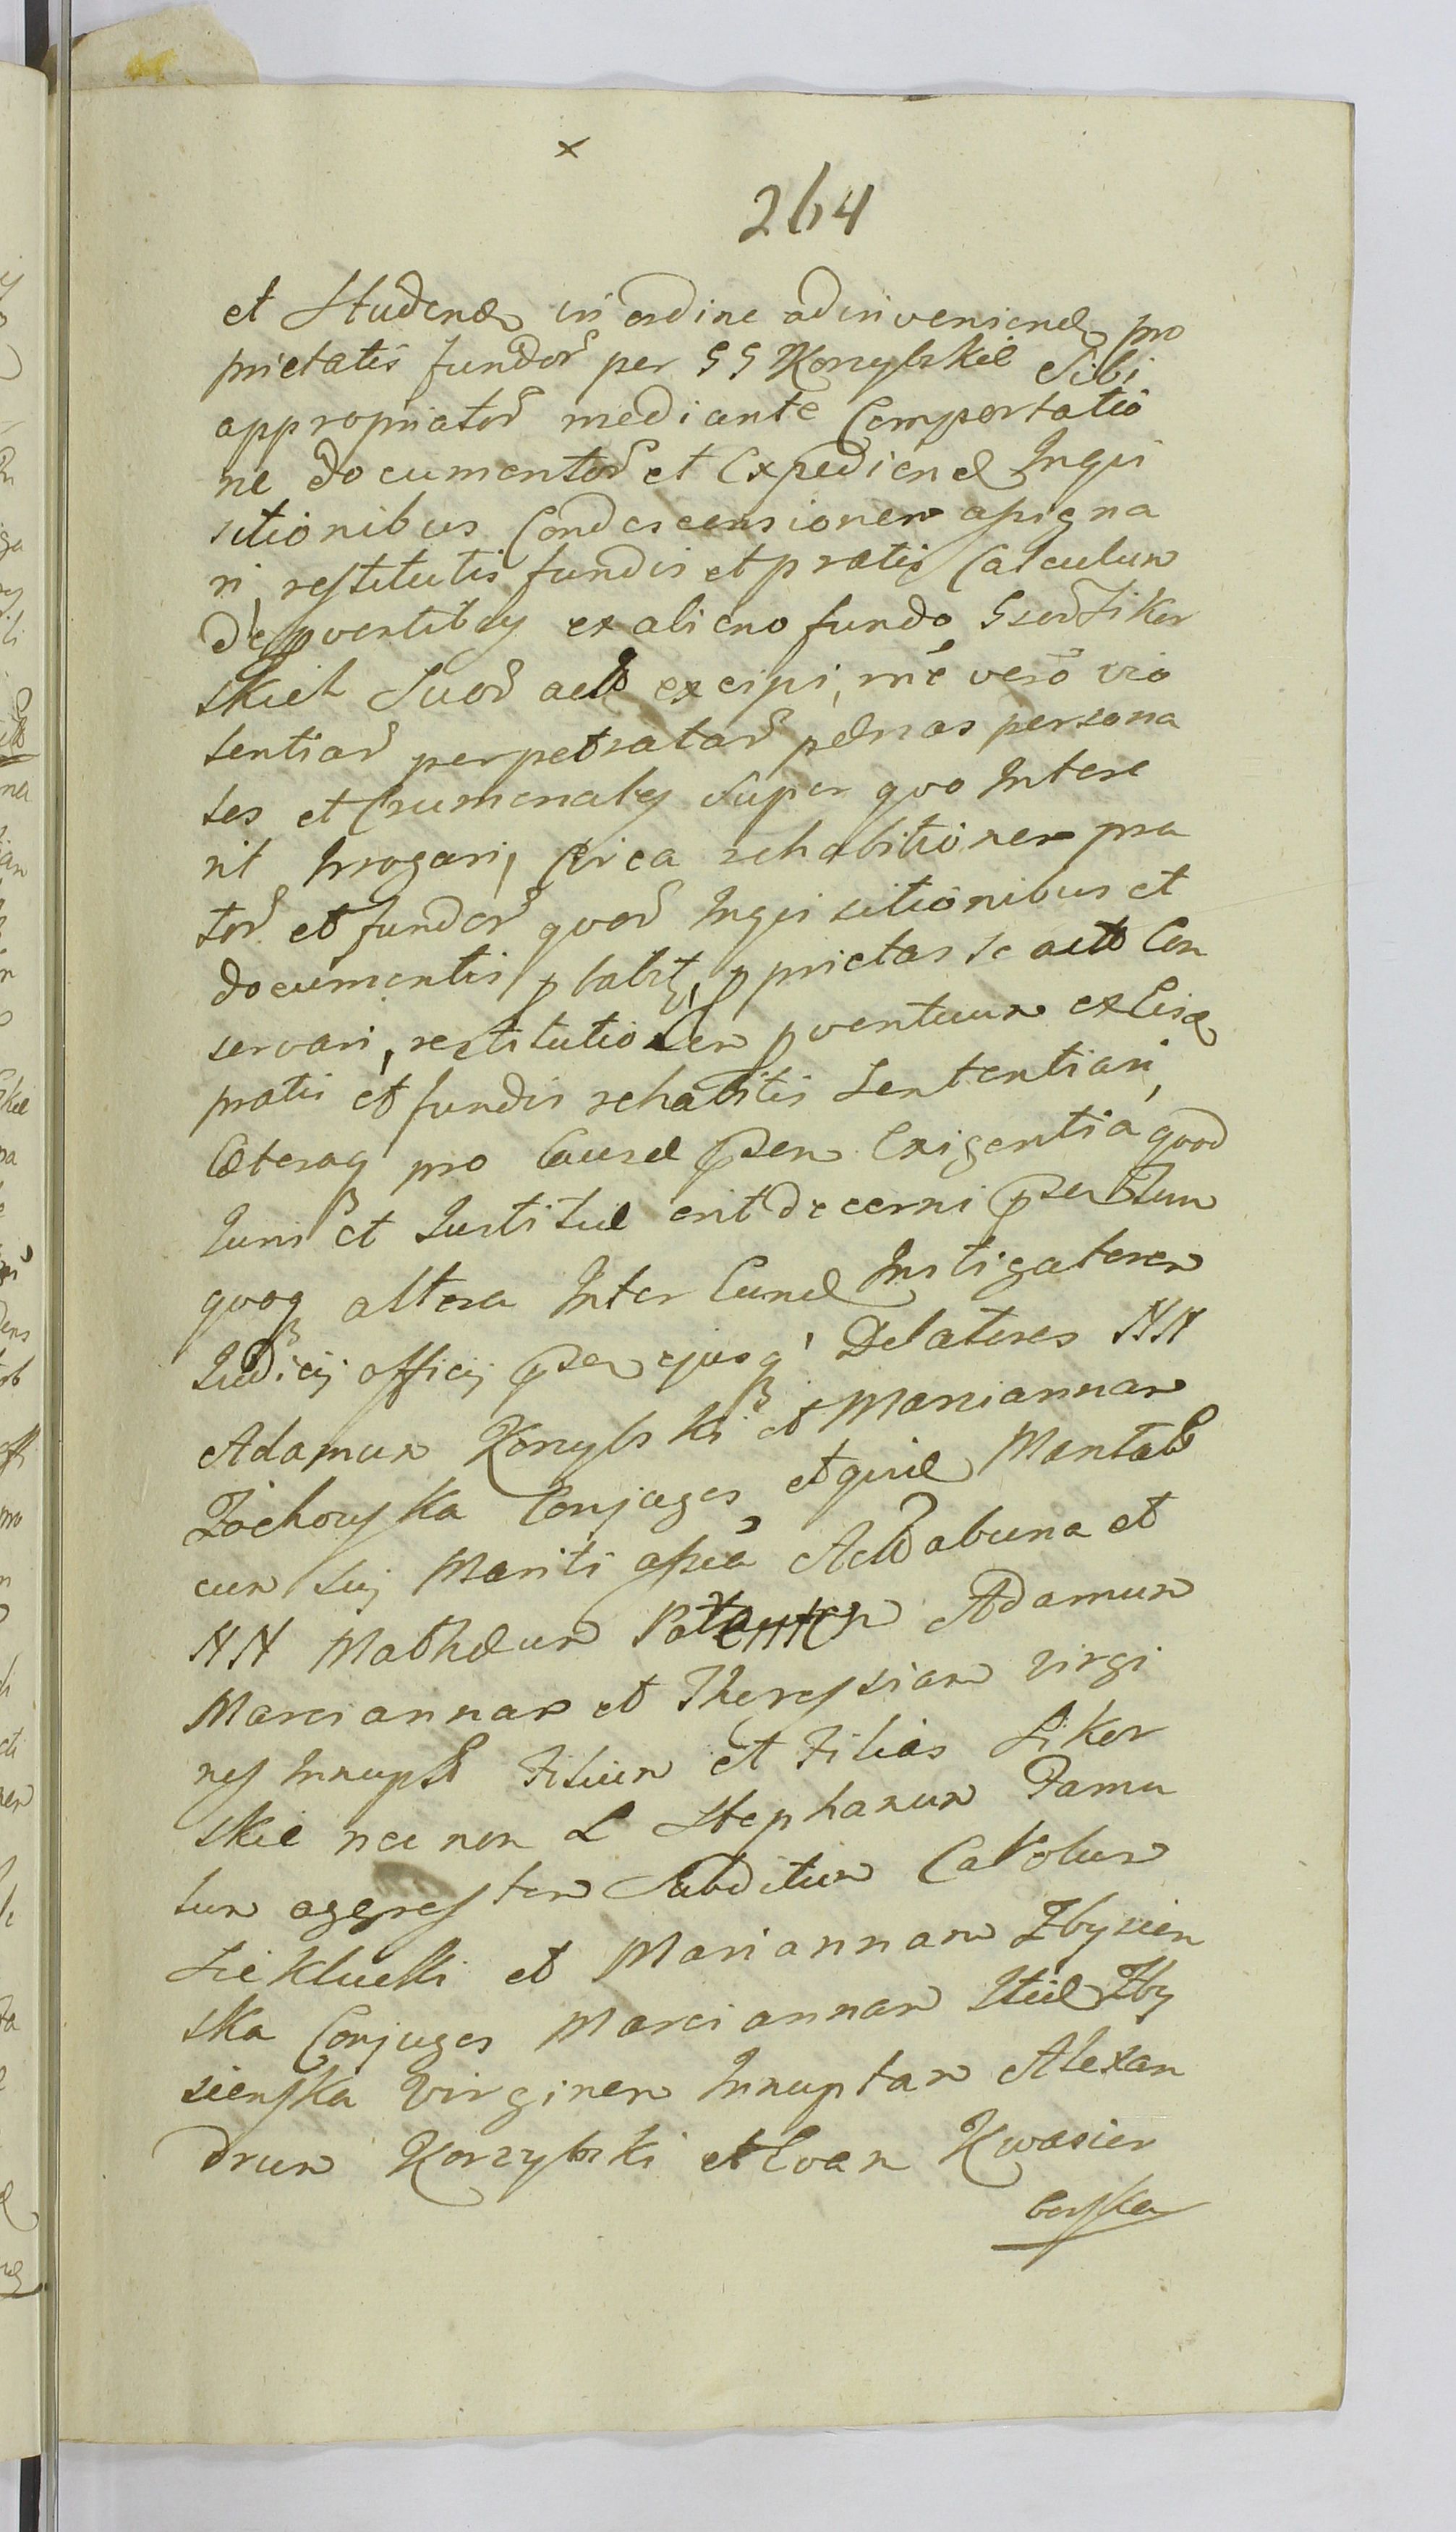 x
264
et Studend in ordine adinveniend pro
prietatis fundor per GG Korzybskie Sibi
appropriator mediante Comportatio
ne documentor et Expediend Inqui
sitionibus Condescensionem assigna
ri, restitutis fundis et pratis Calculum
de pventibq ex alieno fundo Sikor
skich Suor acto excipi, rne vero vio
lentiar perpetratar poenas persona
les et Crumenales super quo Intere
rit Irrogari, Circa rehabitionem pra
tor et fundor quor Inquisitionibus et
documentis pbabit, pprietas se acto Con
servari, restitutionem pventuum ex eisd
pratis et fundis rehabitis Sententiari,
Coeteraq pro Causae psen Exigentia quod
Juris et Justitiae erit decerni psen
quoq altera Inter Eund Instigatorem
Judicij officij psen ejusq Delatores NN
Adamum Korzybski et Mariannam
Zochowska Conjuges et quie
cum sui Mariti assia et
NN Mathaeum Adamum
Marciannam et Theressiam virgi
nes Innupt Filium et Filias Sikor
skie nec non L Stephanum Famu
lum aggrestem Subditum Carolum
et Mariannam Zbysien
ska Conjuges Marciannam Zby
sienska Virginem Innuptam Alexan
drum Korzybski et Evam Kwasie
borska